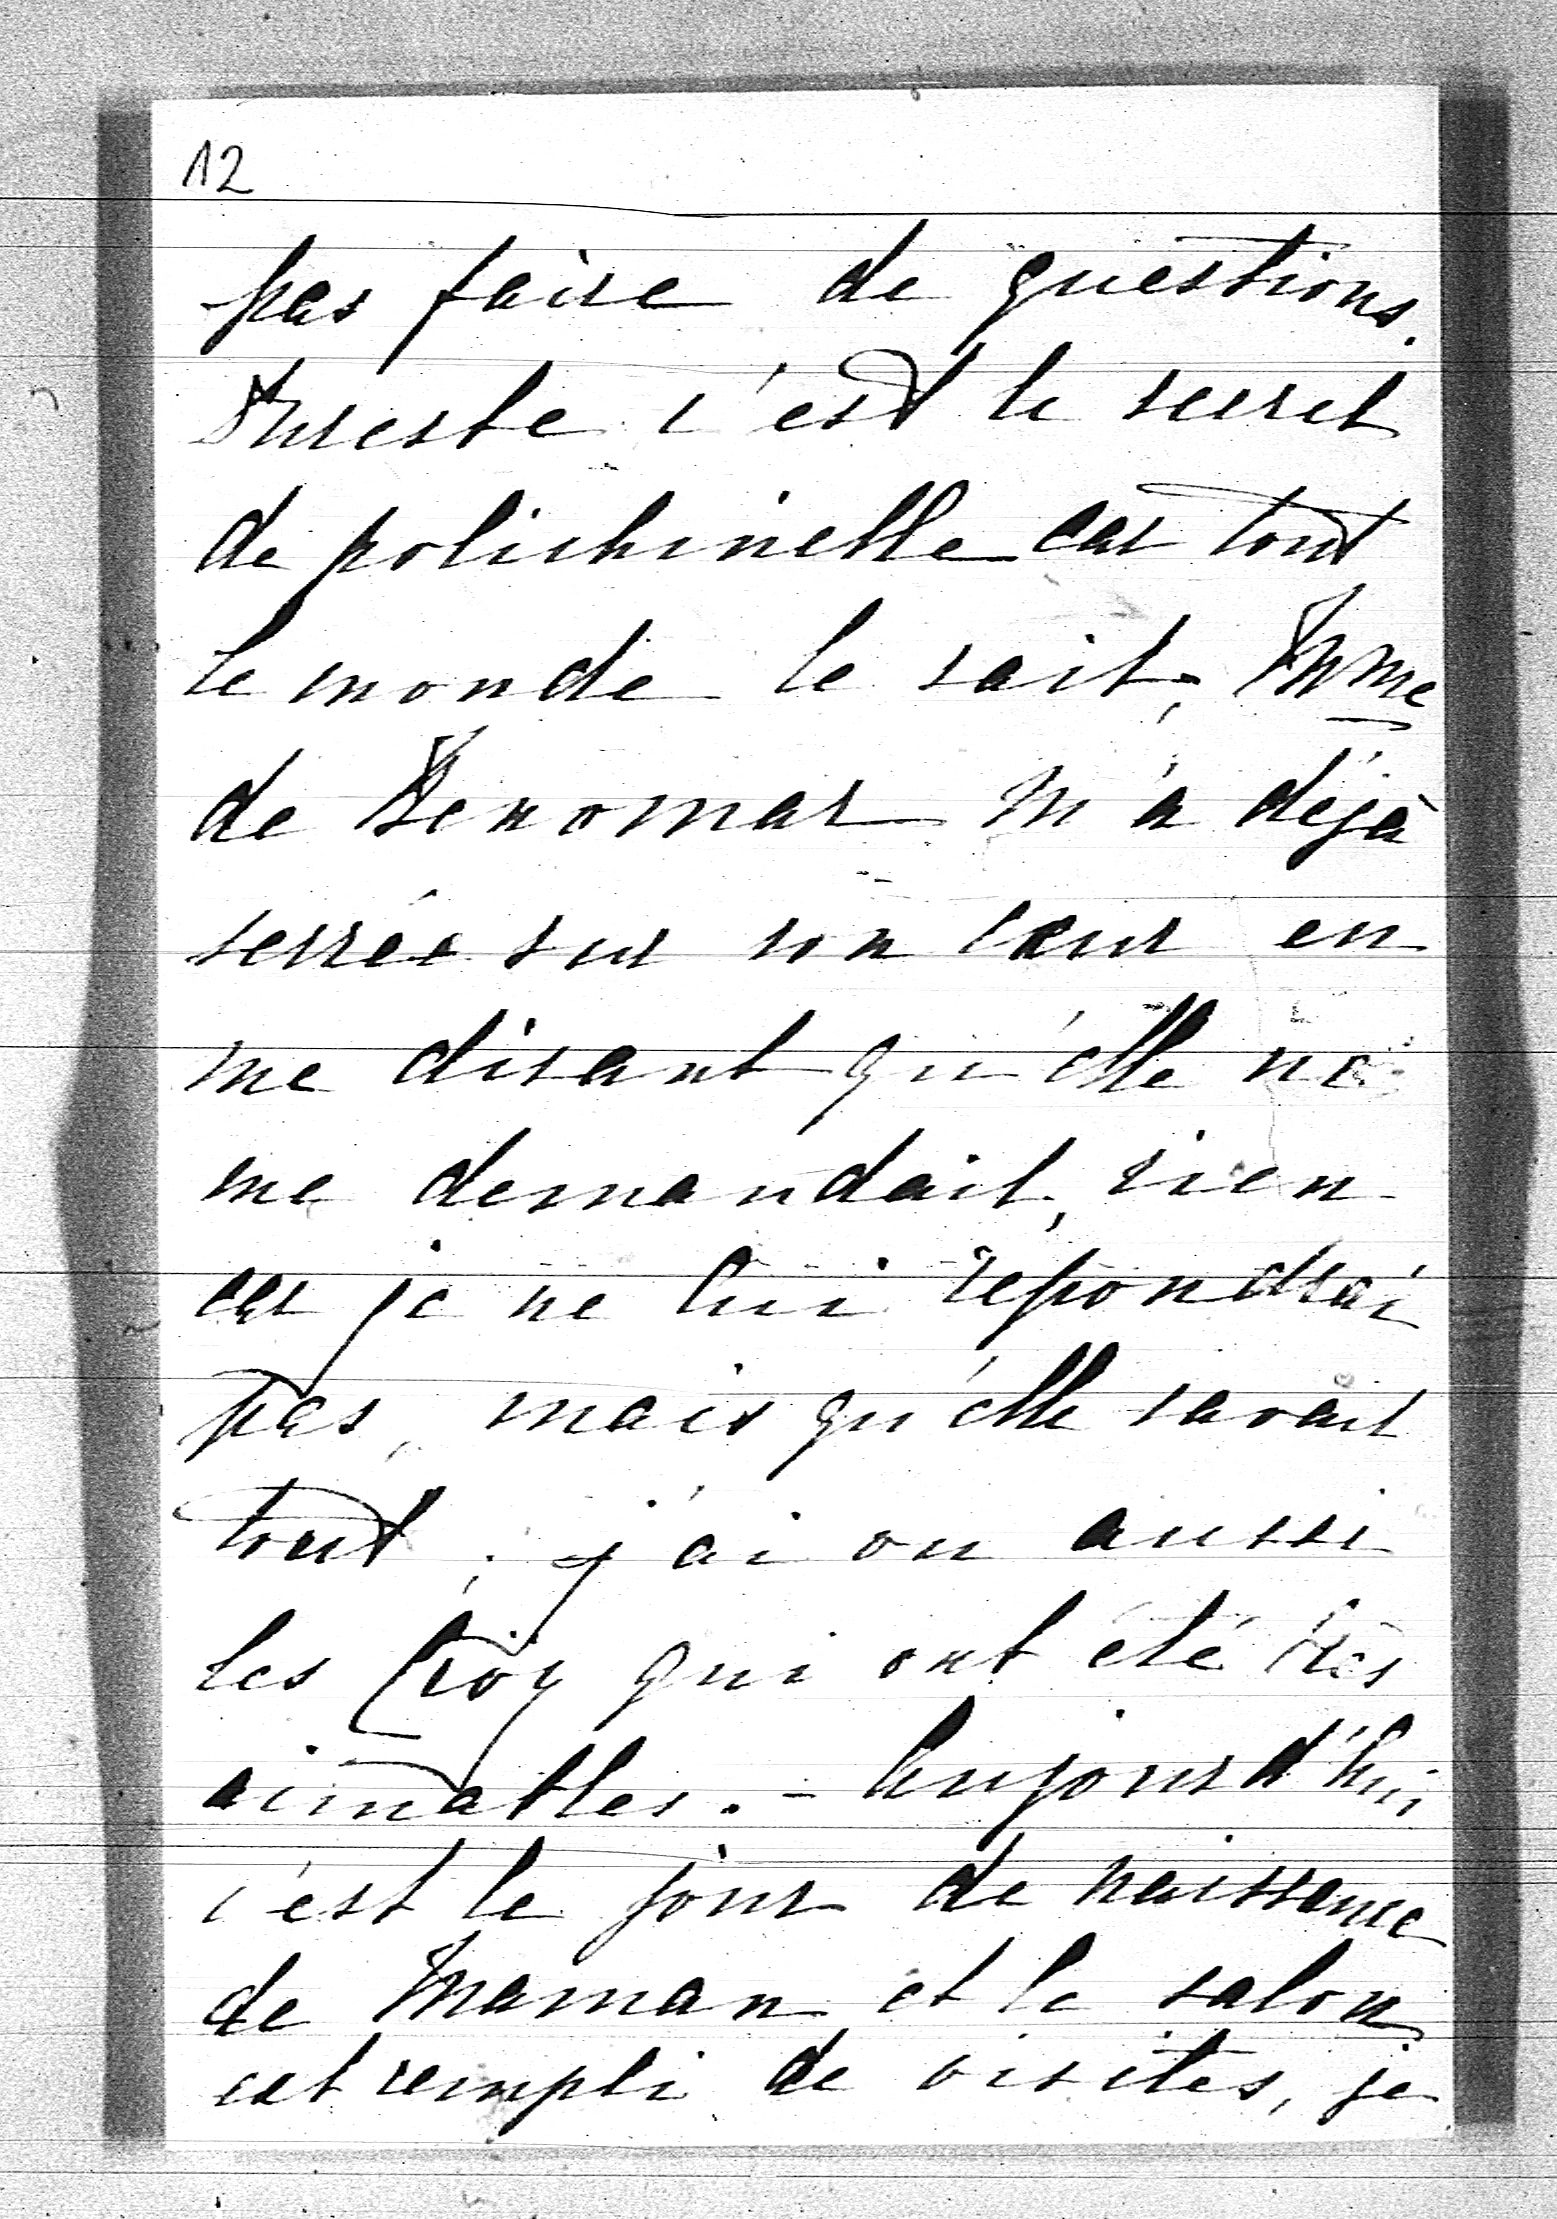 12
pas faire de questions.
Dureste c'est le secret
de polichinelle car tout
le monde le sait; Mme
de Benomar m'a déjà
serrée sur son cœur en
me disant qu'elle ne
me demandait, rien
car je ne lui répondrai
pas, mais qu'elle savait
tout; j'ai vu aussi
les Croÿ qui ont été très
aimables. - Aujourd'hui
c'est le jour de naissance
de Maman et le salon
est rempli de visites, je